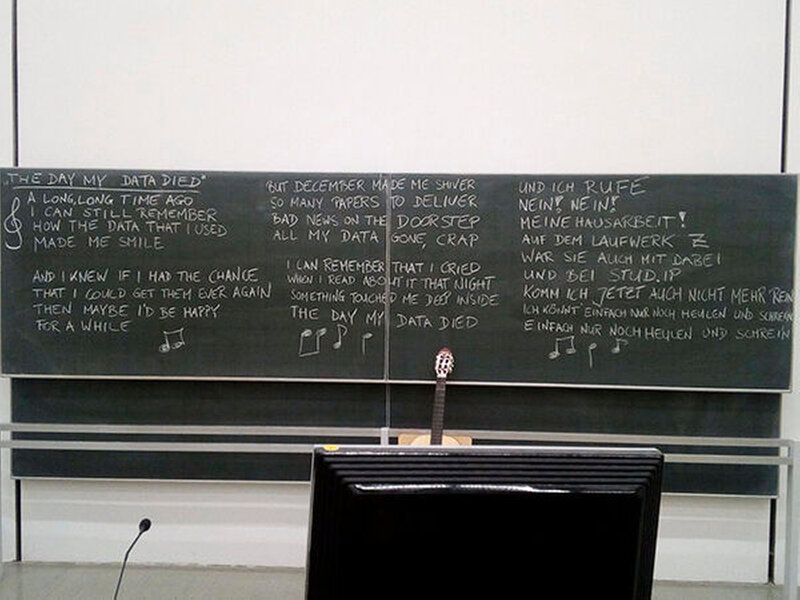 „THE DAY MY DATA DIED"
A LONG, LONG TIME AGO
I CAN STILL REMEMBER
HOW THE DATA THAT I USED
MADE ME SMILE
AND I KNEW IF I HAD THE CHANCE
THAT I COULD GET THEM EVER AGAIN
THEN MAYBE I'D BE HAPPY
FOR A WHILE
BUT DECEMBER MADE ME SHIVER
SO MANY PAPERS TO DELIVER
BAD NEWS ON THE DOORSTEP
ALL MY DATA GONE, CRAP
I CAN REMEMBER THAT I CRIED
WHEN I READ ABOUT IT THAT NIGHT
SOMETHING TOUCHED ME DEEP INSIDE
THE DAY MY DATA DIED
UND ICH RUFE
NEIN! NEIN!
MEINE HAUSARBEIT!
AUF DEM LAUFWERK Z
WAR SIE AUCH MIT DABEI
UND BEI STUD.IP
KOMM ICH JETZT AUCH NICHT MEHR REIN
ICH KÖNNT EINFACH NUR NOCH HEULEN UND SCHREIN
EINFACH NUR NOCH HEULEN UND SCHREIN